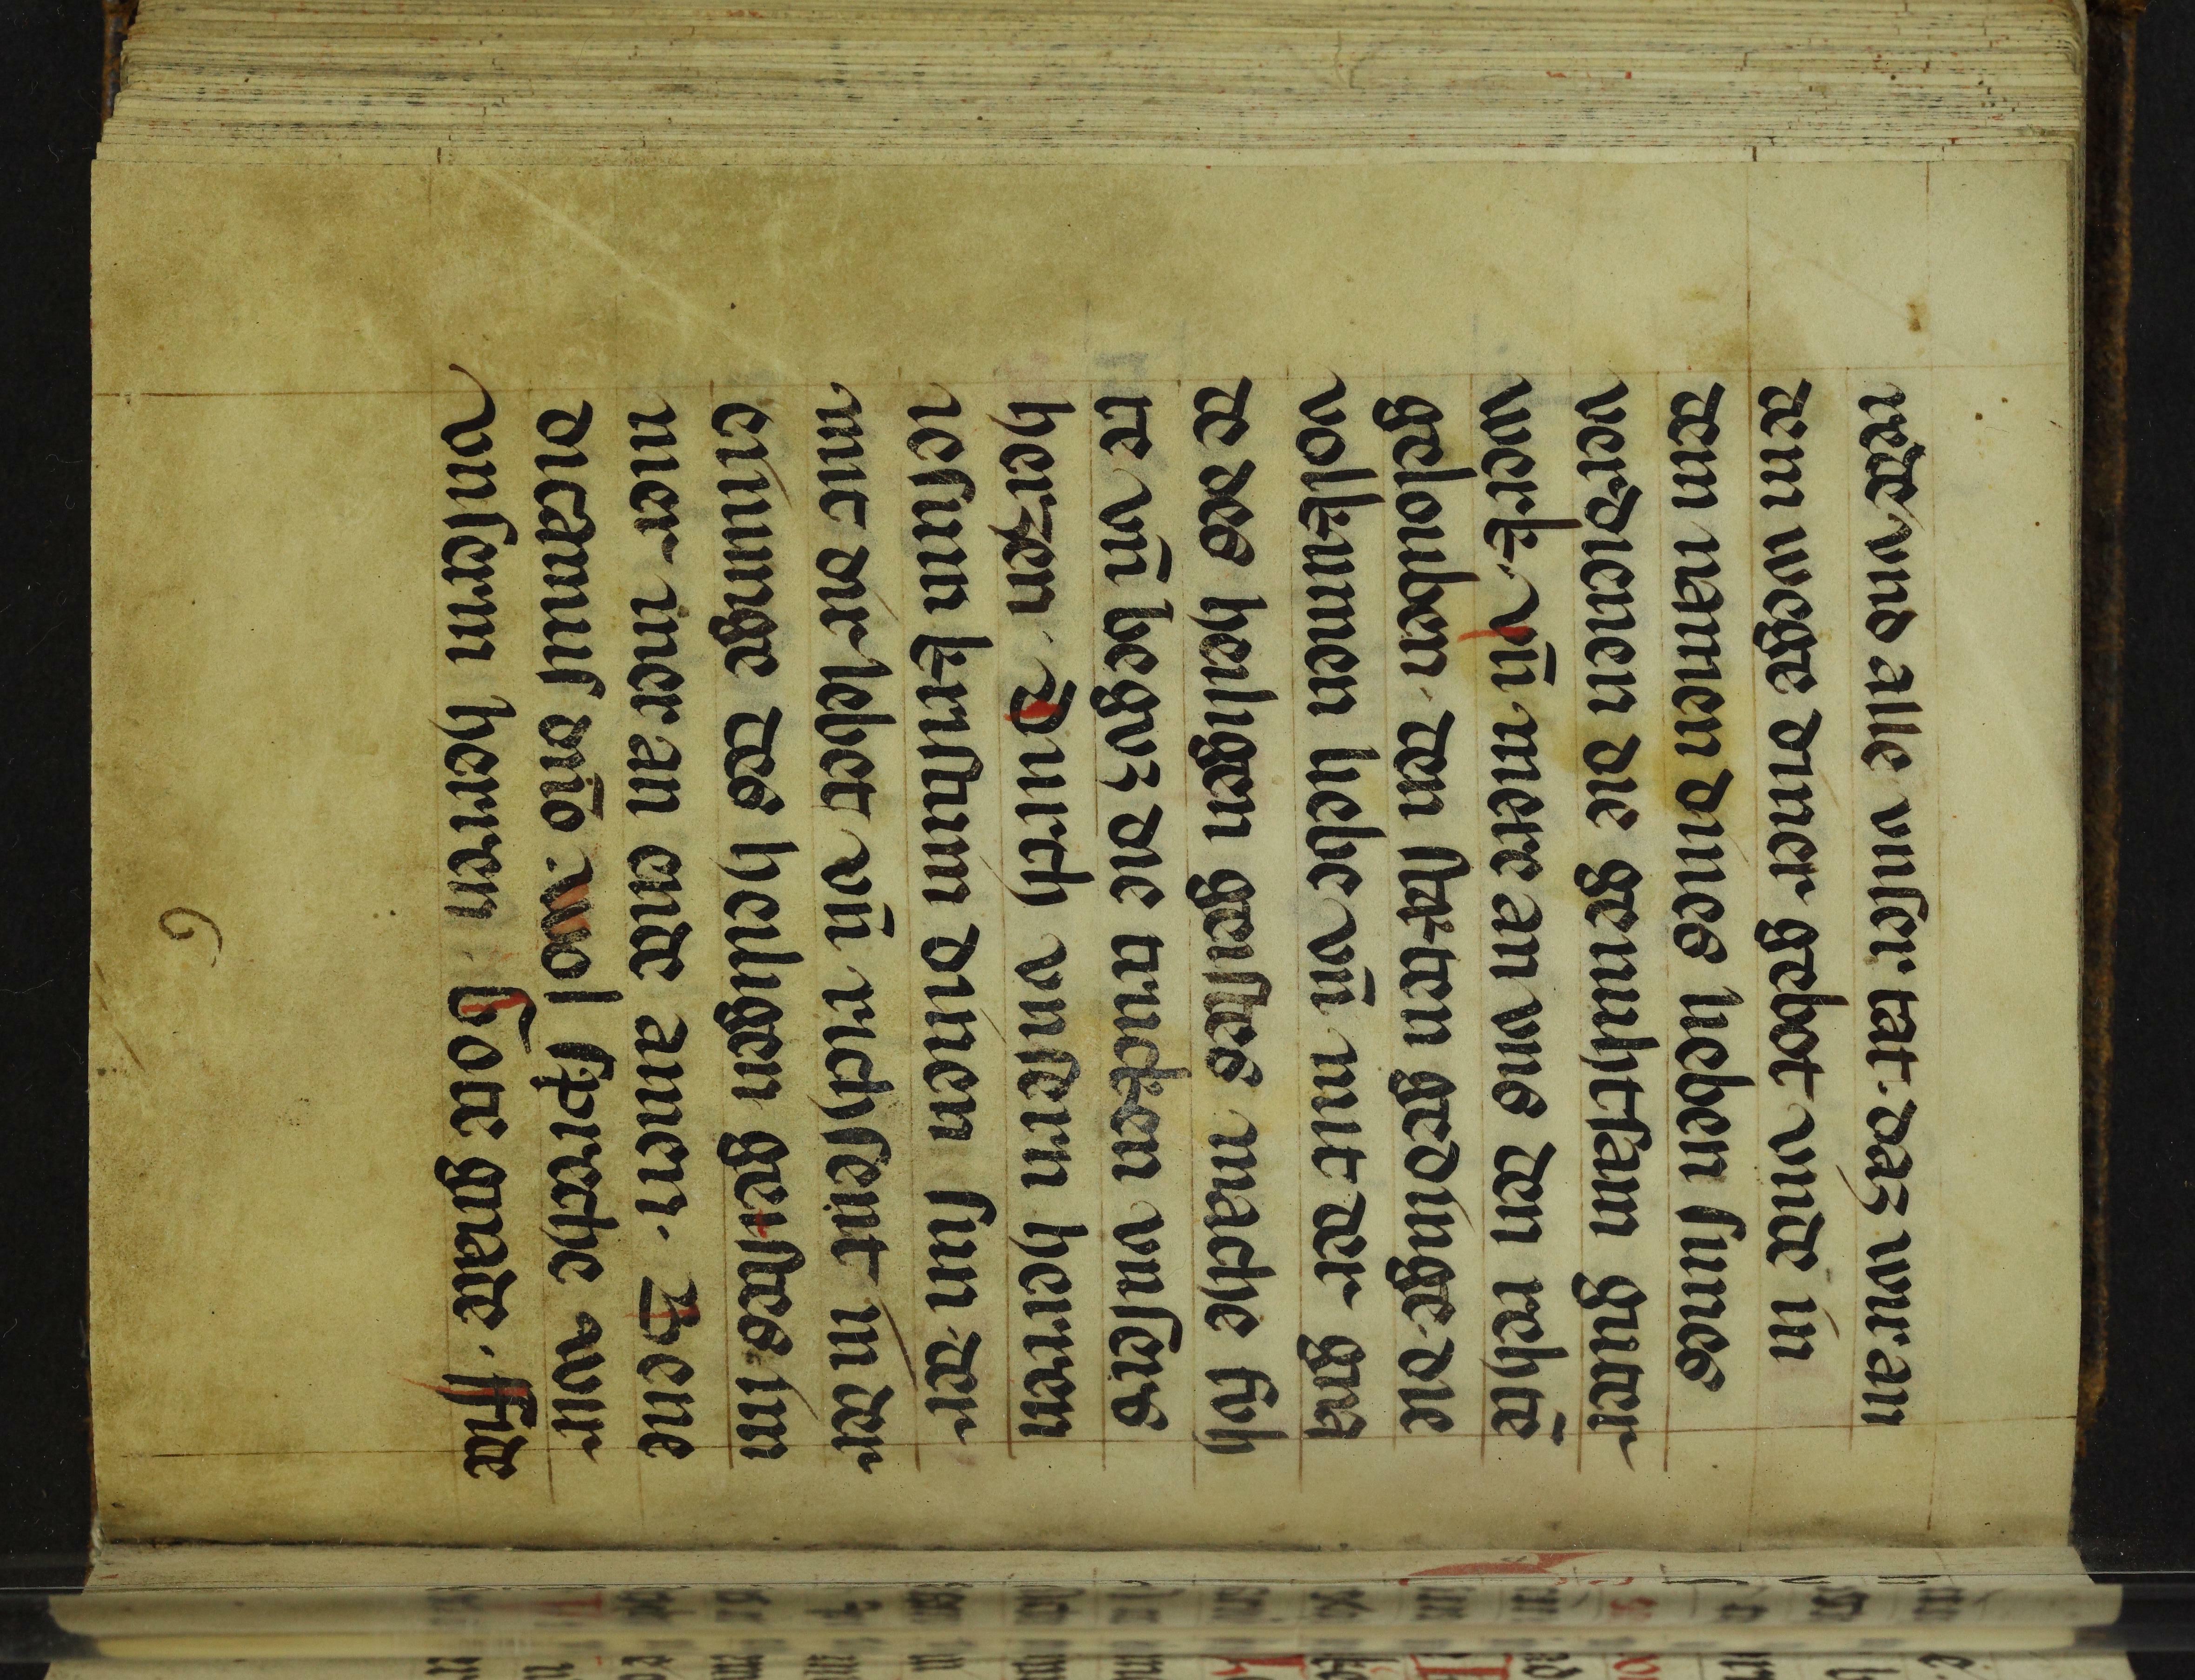 rede vnd alle vnser tat. daz wir an
dem wege diner gebot vnde in
dem namen dines lieben sunes
verdienen die genuhtsam guter
werk. vn̄ mere an vns den rehtē
gelouben. den stæten gedinge. die
volkumen liebe vn̄ mit der gna
de des heiligen geistes mache fuh
te vn̄ begvz die trucken vnsers
herzen. Durch vnsern herren
iesum kristum dinen sun. der
mit dir lebet vn̄ richsent in der
einunge des heiligen geistes im
mer imer an ende amen. Bene
dicamus dn̄o. wol sprechē wir
vnserm herren Gote gnade. ffide
6